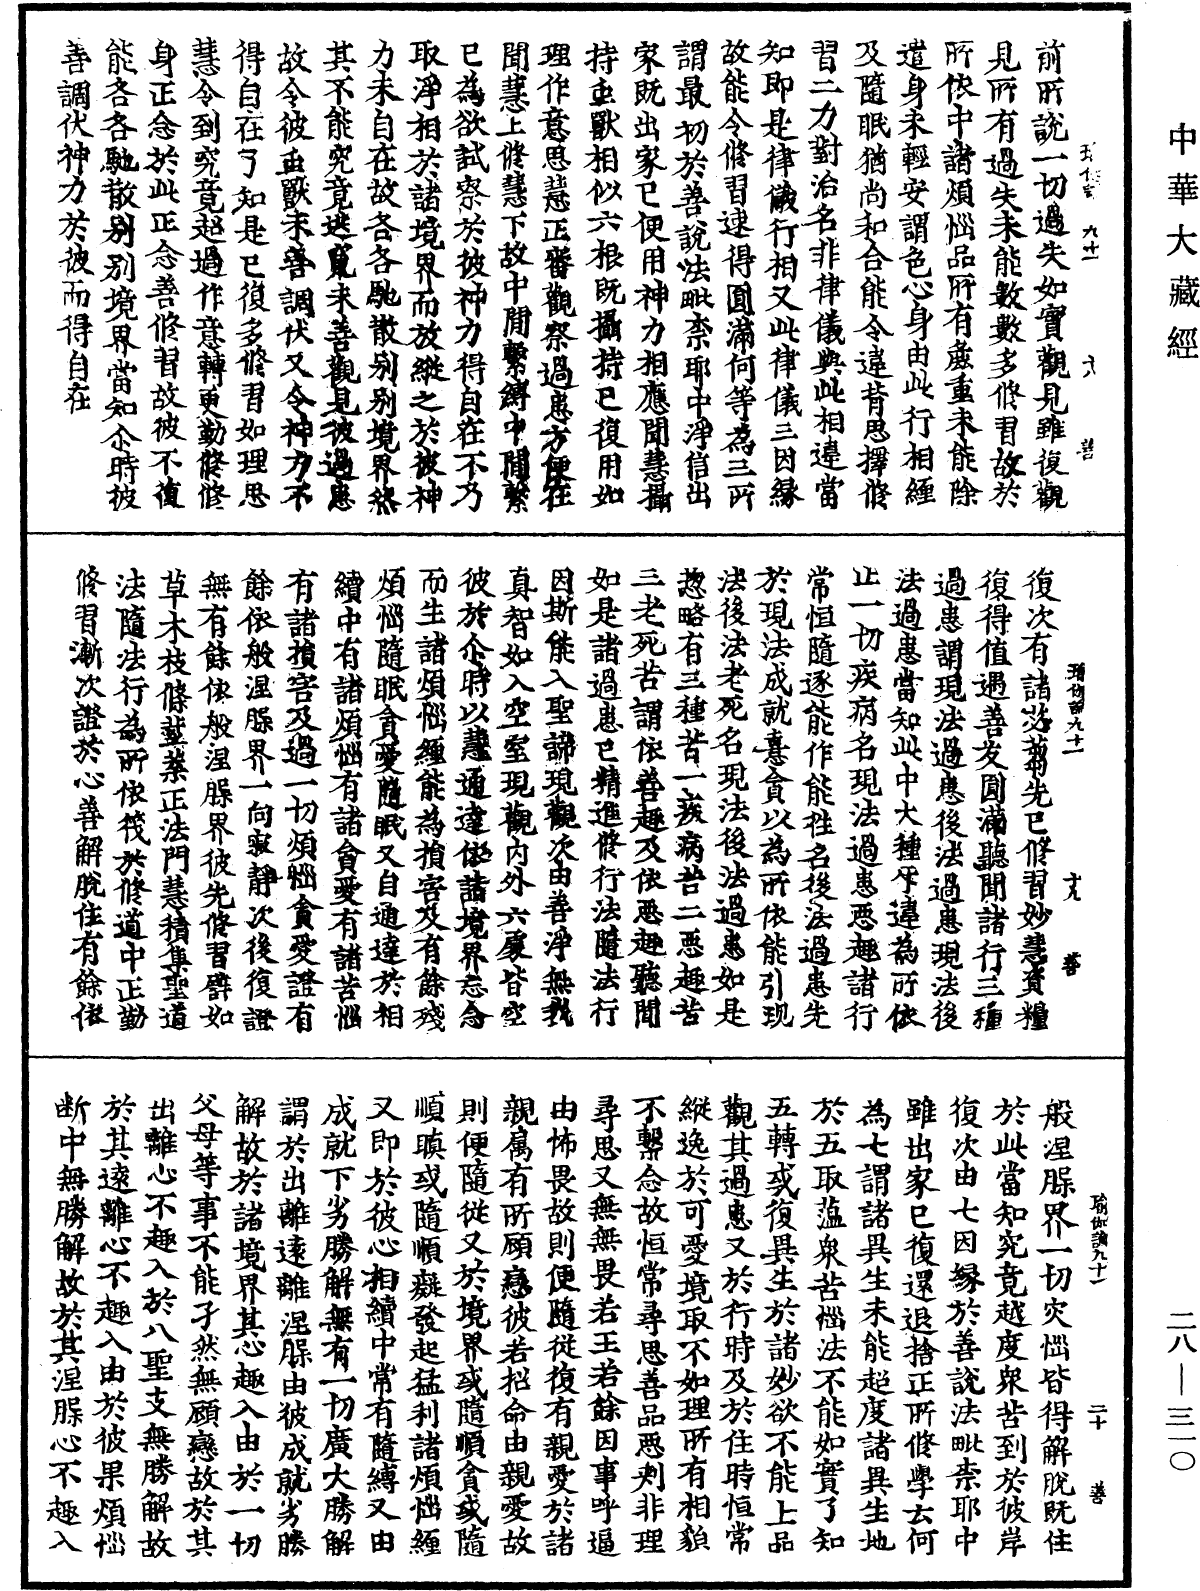 中華大藏經
前所說一切過失如實觀見雖復觀
見所有過失未能數數多修習故於
所依中諸煩惱品所有麁重未能除
遣身未輕安謂色心身由此行相纏
及隨眠猶尚和合能令違背思擇修
習二力對治名非律儀與此相違當
知即是律儀行相又此律儀三因緣
故能令修習速得圓滿何等為三所
謂最初於善說法毗柰耶中淨信出
家既出家已便用神力相應聞慧攝
持虫獸相似六根既攝持已復用如
理作意思慧正審觀察過患方便在
聞慧上修慧下故中間繫縛中間繫
已為欲試察於彼神力得自在不乃
取淨相於諸境界而放縱之於彼神
力未自在故各各馳散別別境界終
其不能究竟迷寬未善觀見彼過患
故令彼虫獸未善調伏又令神力不
得自在了知是已復多修習如理思
慧令到究竟超過作意轉更勤修修
身正念於此正念善修習故彼不復
能各各馳散別別境界當知尒時彼
善調伏神力於彼而得自在
瑜伽論九十一　十九　善
復次有諸苾蒭先已修習妙慧資糧
復得值遇善友圓滿聽聞諸行三種
過患謂現法過患後法過患現法後
法過患當知此中大種牙違為所依
止一切疾病名現法過患惡趣諸行
常恒隨逐能作能往名後法過患先
於現法成就憙貪以為所依能引現
法後法老死名現法後法過患如是
惣略有三種苦一疾病苦二惡趣苦
三老死苦謂依善趣及依惡趣聽聞
如是諸過患已精進修行法隨法行
因斯能入聖諦現觀次由善淨無我
真智如入空室現觀內外六處皆空
彼於尒時以慧通達依諸境界忘念
而生諸煩惱纏能為損害及有餘殘
煩惱隨眠貪愛隨眠又自通達於相
續中有諸煩惱有諸貪愛有諸苦惱
有諸損害及過一切煩惱貪愛證有
餘依般涅腂界一向寂靜次後復證
無有餘依般涅腂界彼先修習譬如
草木枝條莖葉正法門慧積集聖道
法隨法行為所依筏於修道中正勤
修習漸次證於心善解脫住有餘依
瑜伽論九十一　二十　善
般涅腂界一切灾惱皆得解脫既住
於此當知究竟越度衆苦到於彼岸
復次由七因緣於善說法毗柰耶中
雖出家已復還退捨正所修學云何
為七謂諸異生未能超度諸異生地
於五取蘊衆苦惱法不能如實了知
五轉或復異生於諸妙欲不能上品
觀其過患又於行時及於住時恒常
縱逸於可愛境取不如理所有相貌
不繫念故恒常尋思善品惡刺非理
尋思又無無畏若王若餘因事呼逼
由怖畏故則便隨從復有親愛於諸
親屬有所願戀彼若招命由親愛故
則便隨從又於境界或隨順貪或隨
順瞋或隨順癡發起猛利諸煩惱纏
又即於彼心相續中常有隨縛又由
成就下劣勝解無有一切廣大勝解
謂於出離遠離涅腂由彼成就劣勝
解故於諸境界其心趣入由於一切
父母等事不能孑然無顧戀故於其
出離心不趣入於八聖支無勝解故
於其遠離心不趣入由於彼果煩惱
斷中無勝解故於其涅腂心不趣入
二八—三一〇